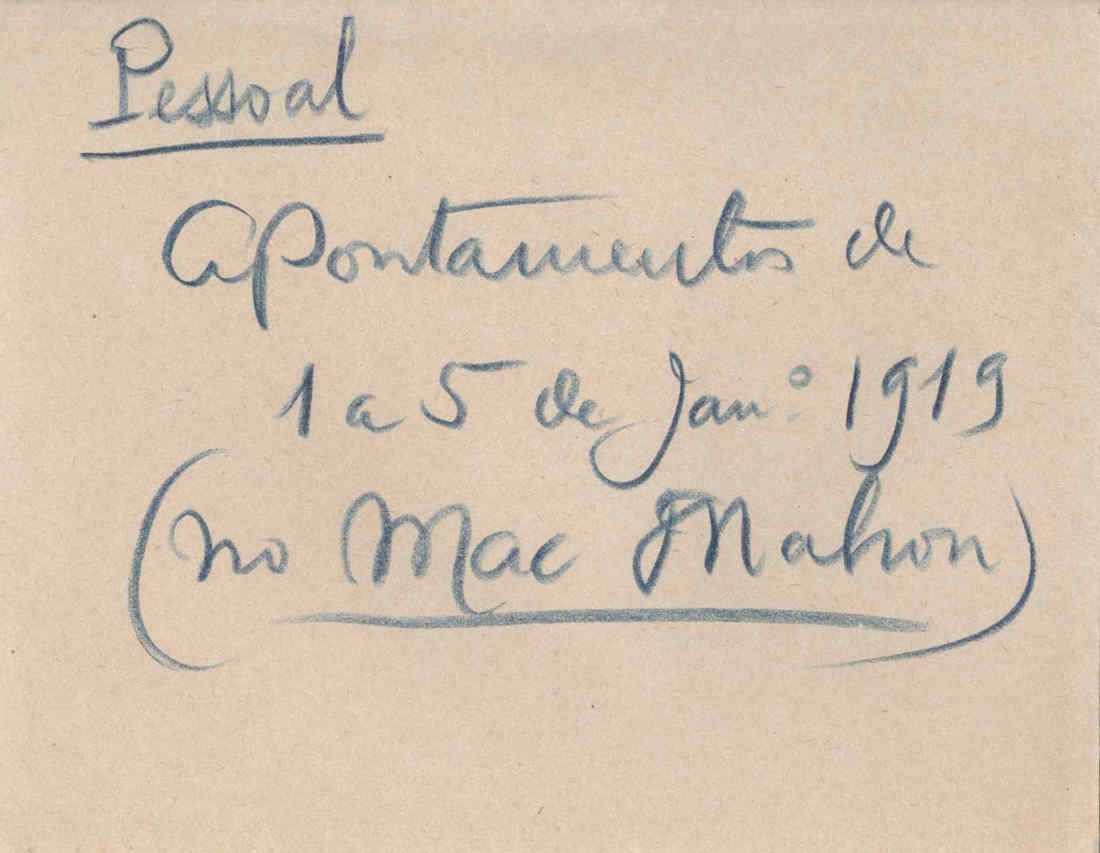 Pessoal
Apontamentos de
1 a 5 de Janº 1919
(no Mac Mahon)